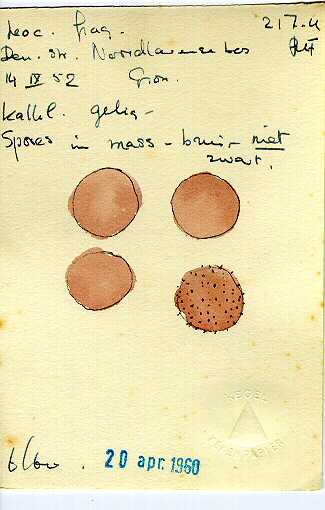 Leoc. frag. 217.U
Den. str. Noordlarense bos
14 IX 52 Gron.
Kalkl. gelig -
Spores in mass - bruin - niet
zwart.
20 apr. 1960